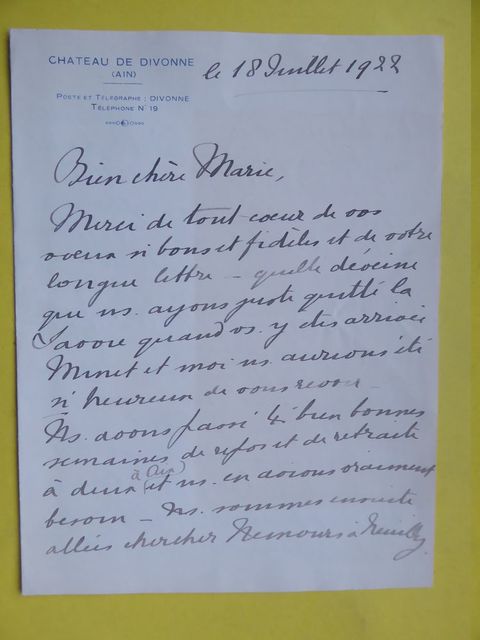 CHATEAU DE DIVONNE
(AIN)
POSTE ET TÉLÉGRAPHE : DIVONNE
TÉLÉPHONE N° 19
le 18 Juillet 1922
Bien chère Marie,
Merci de tout cœur de vos
vœux si bons et fidèles et de votre
longue lettre – quelle déveine
que ns. ayons juste quitté la
Savoie quand vs. y êtes arrivée
Minet et moi ns. aurions été
si heureux de vous revoir –
Ns. avons passé 4 bien bonnes
semaines de repos et de retraite
à deux (à Aix) et ns. en avions vraiment
besoin – Ns. sommes ensuite
allés chercher Nemours à Neuilly